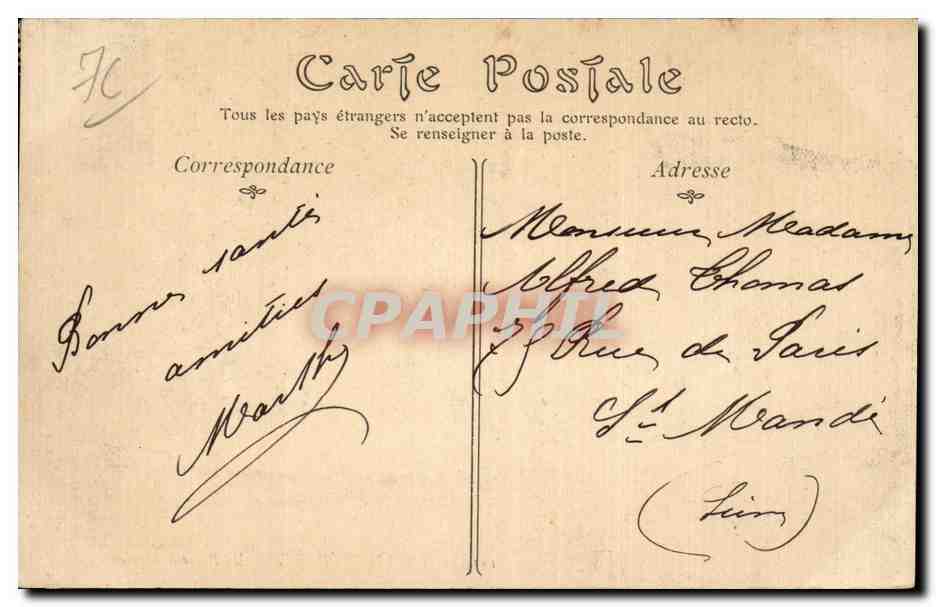 7C
Carte Postale
Tous les pays étrangers n'acceptent pas la correspondance au recto.
Se renseigner à la poste.
Correspondance
Bonne santé
amitiés
Marthe
Adresse
Monsieur Madame
Alfred Thomas
Rue de Paris
St Mandé
(Seine)
CPAPHIL